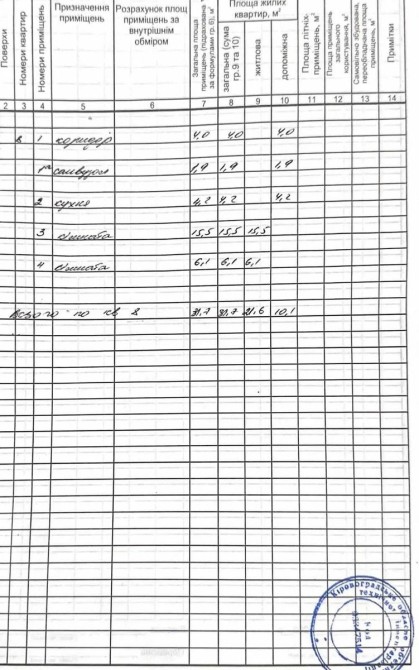 Поверхи
Номери квартир
Номери приміщень
Призначення приміщень
Розрахунок площ приміщень за внутрішнім обміром
Загальна площа приміщень (підрахована за формулами гр. 6), м²
Площа жилих квартир, м²
загальна (сума гр.9 та 10)
житлова
допоміжна
Площа літніх приміщень, м²
Площа приміщень загального користування, м²
Самовільно збудована, переобладнана площа приміщень, м²
Примітки
2 3 4 5 6 7 8 9 10 11 12 13 14
8 1 коридор 4,0 4,0 4,0
санвузол 1,9 1,9 1,9
2 кухня 4,2 4,2 4,2
3 кімната 15,5 15,5 15,5
4 кімната 6,1 6,1 6,1
Всього по кв 8 31,7 31,7 21,6 10,1
Кіровоградське обласне